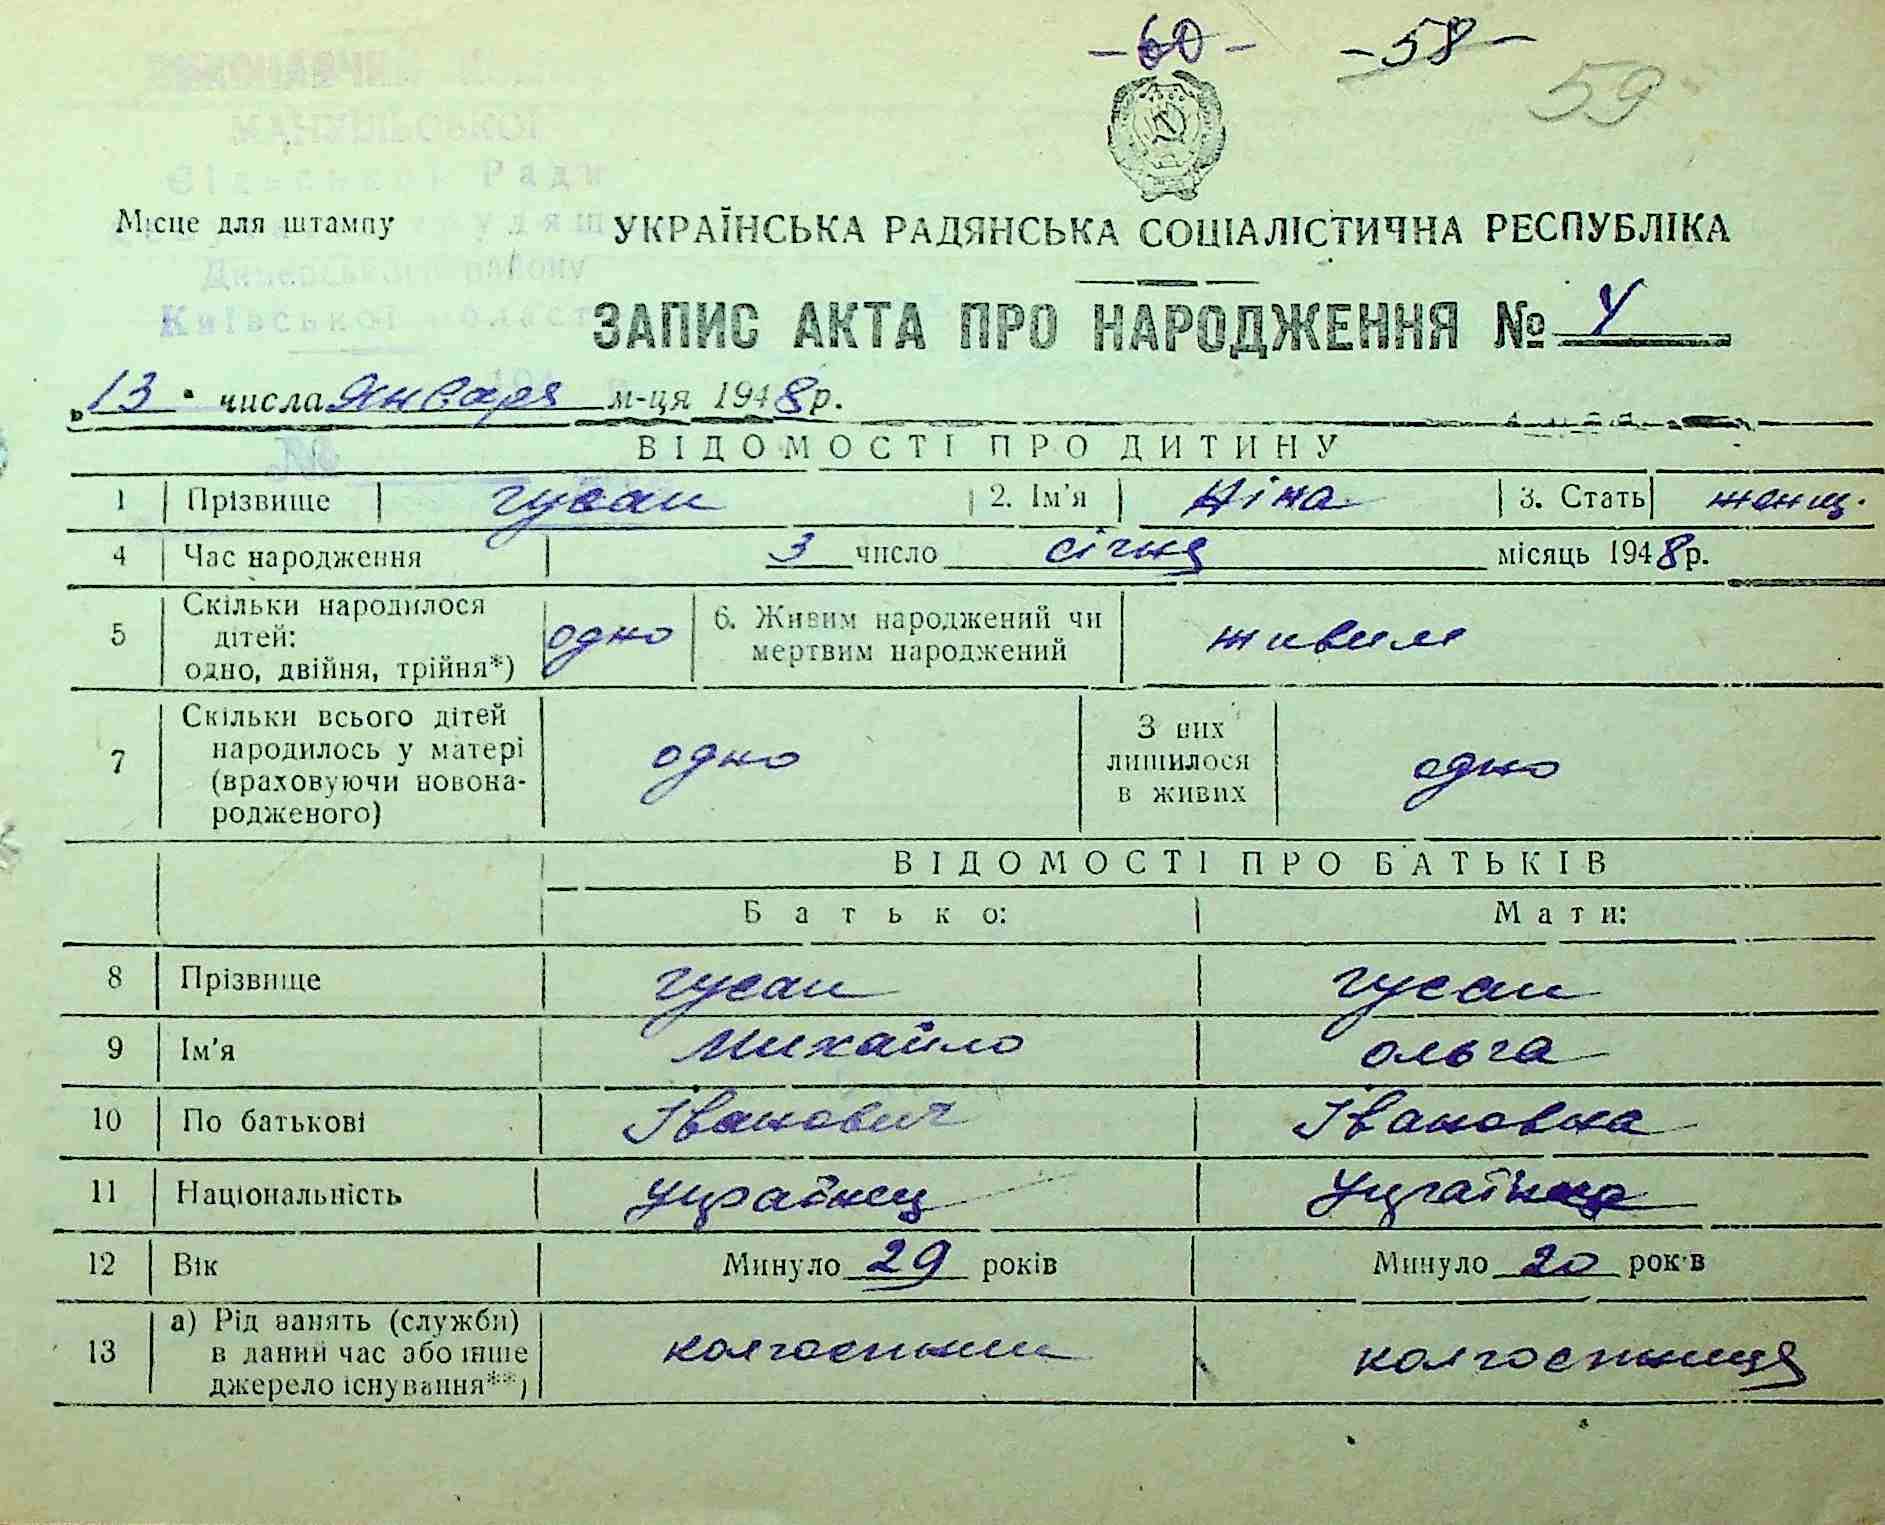 -60- -58-
59
МАНУЇЛЬСЬКОЇ
Сільської Ради
Димерського району
Київської області
Місце для штампу
УКРАЇНСЬКА РАДЯНСЬКА СОЦІАЛІСТИЧНА РЕСПУБЛІКА
ЗАПИС АКТА ПРО НАРОДЖЕННЯ № 4
„13" числа Января м-ця 1948р.
ВІДОМОСТІ ПРО ДИТИНУ
1 Прізвище гусак 2. Ім'я Ніна 3. Стать женщ.
4 Час народження 3 число січня місяць 1948р.
5 Скільки народилося дітей: одно, двійня, трійня*) одно 6. Живим народжений чи мертвим народжений живим
7 Скільки всього дітей народилось у матері (враховуючи новонародженого) одно З них лишилося в живих одно
ВІДОМОСТІ ПРО БАТЬКІВ
Батько: Мати:
8 Прізвище гусак гусак
9 Ім'я Михайло ольга
10 По батькові Іванович Івановна
11 Національність українец українка
12 Вік Минуло 29 років Минуло 20 років
13 а) Рід занять (служби) в даний час або інше джерело існування**) колгоспник колгоспниця